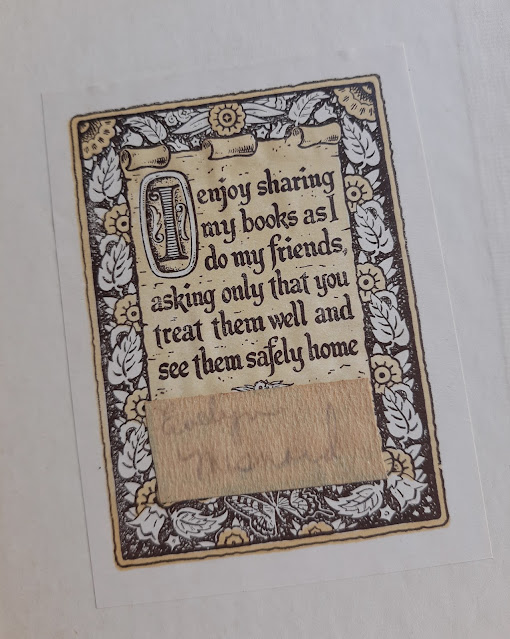 I enjoy sharing
my books as I
do my friends,
asking only that you
treat them well and
see them safely home
Evelyn